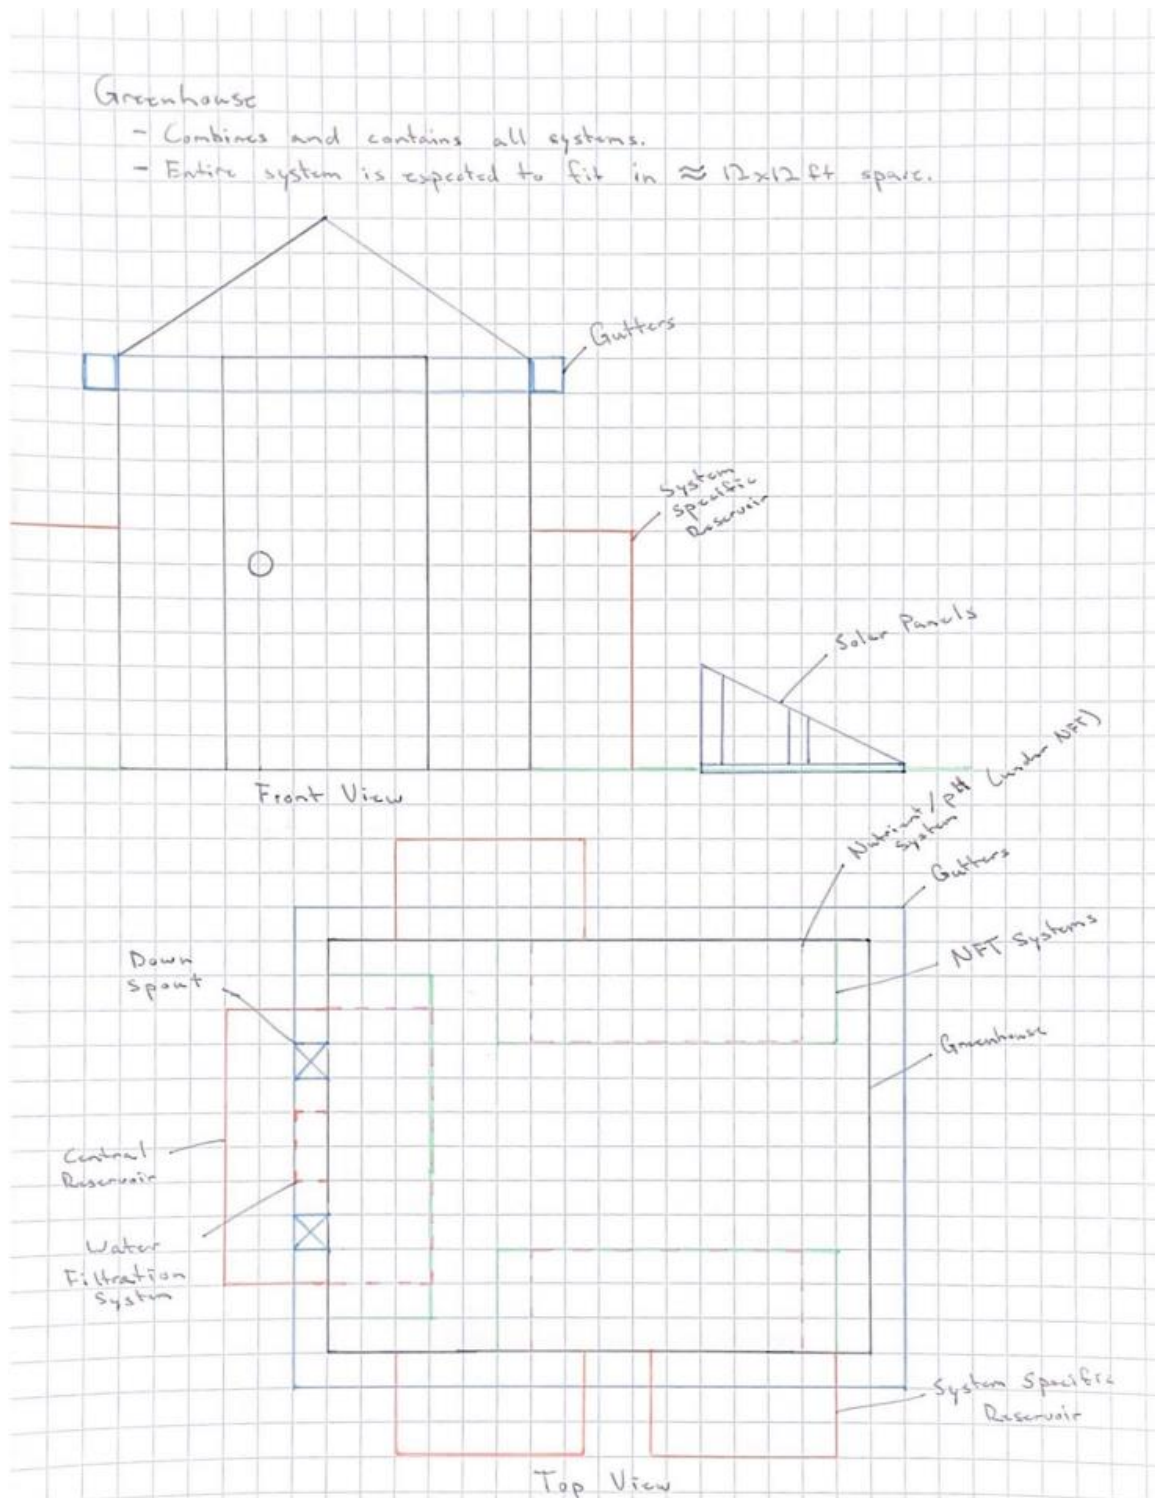 Greenhouse
- Combines and contains all systems.
- Entire system is expected to fit in ≈ 12x12 ft space.
Gutters
System
Specific
Reservoir
Solar Panels
Front View
Nutrient/pH (under NFT)
System
Gutters
Down
Spout
NFT Systems
Greenhouse
Central
Reservoir
Water
Filtration
System
System Specific
Reservoir
Top View